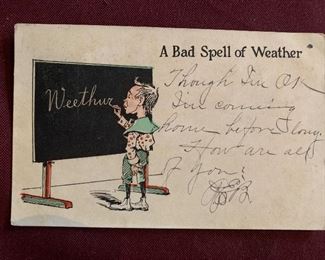 A Bad Spell of Weather
Weethur
Though I'm OK
I'm coming
home before long.
How are all
of you?